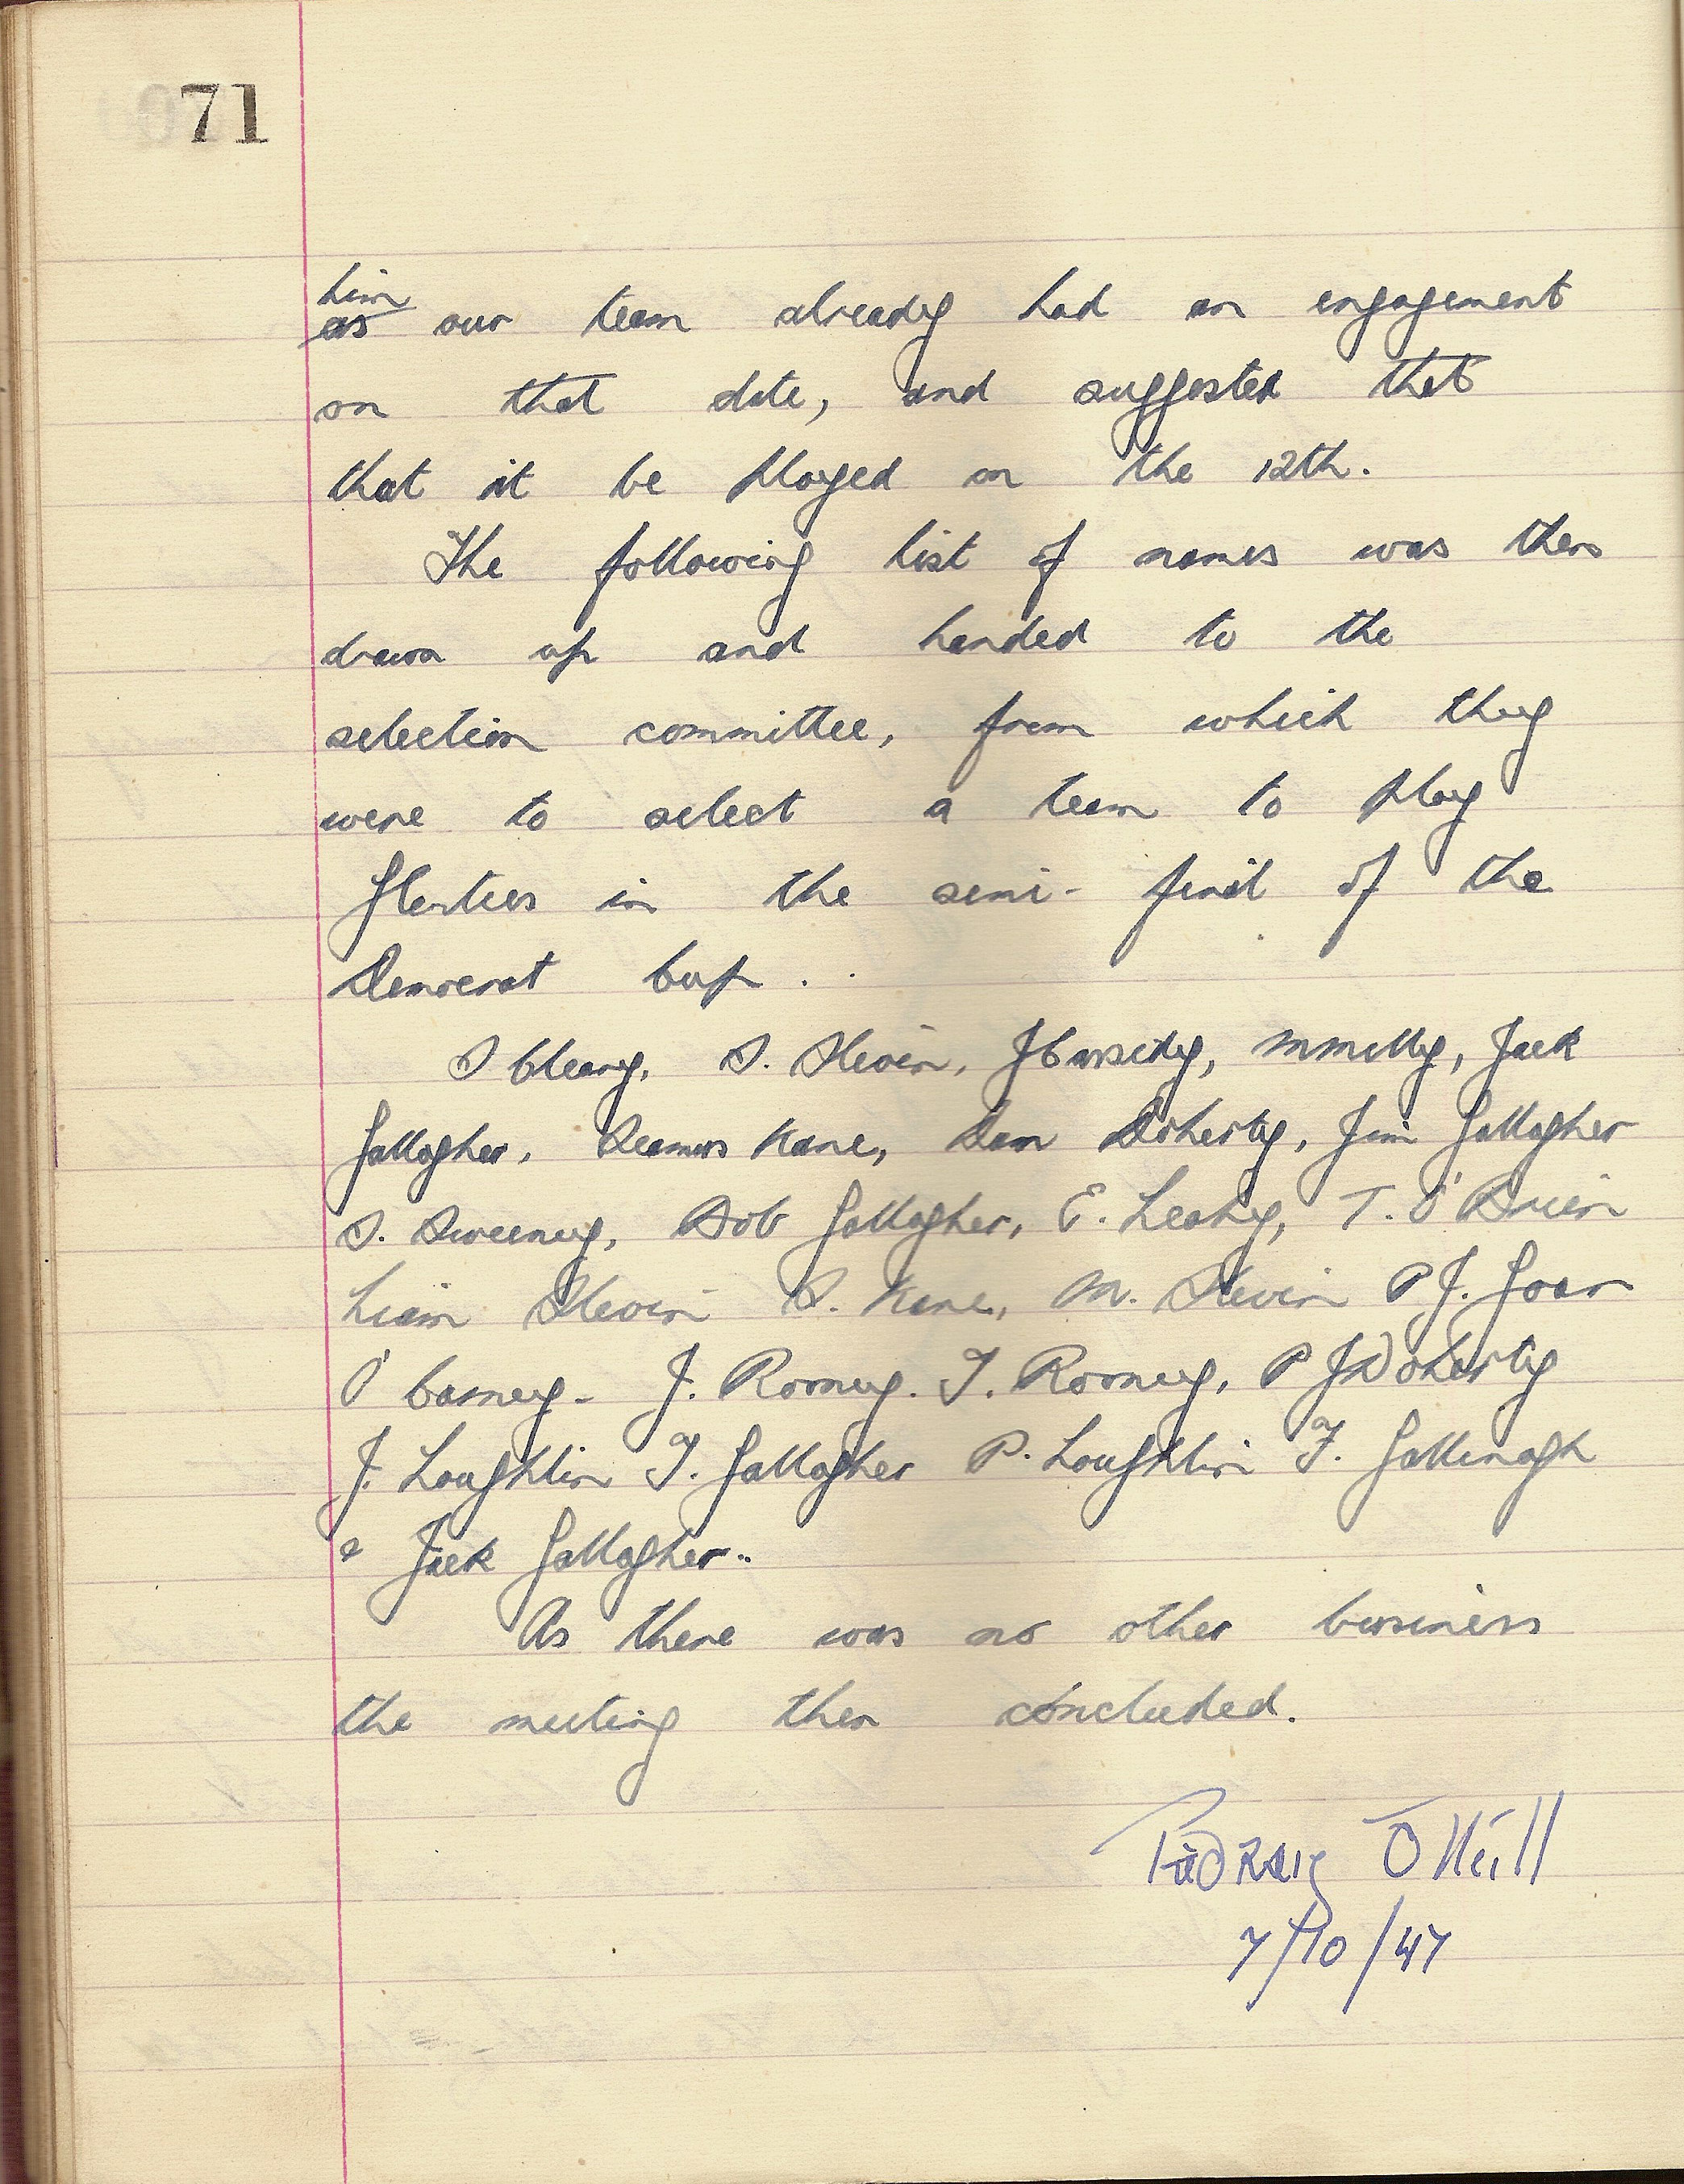 71
him
as our team already had an engagement
on that date, and suggested that
that it be played on the 12th.
The following list of names was then
drawn up and handed to the
selection committee, from which they
were to select a team to play
Glenties in the semi-final of the
Democrat Cup.
S Cleary, S. Slevin, J Cassidy, M Melly, Jack
Gallagher, Seamus Kane, Dan Doherty, Jim Gallagher
S. Sweeney, Bob Gallagher, E. Leahy, T. O'Brien
Liam Slevin S. Kane, M. Slevin P J. Goan
O' Carney - J. Rooney. T. Rooney, P J Doherty
J. Loughlin T. Gallagher P. Loughlin T. Gallinagh
& Jack Gallagher..
As there was no other business
the meeting then concluded.
Pádraig Ó Neill
7/10/47